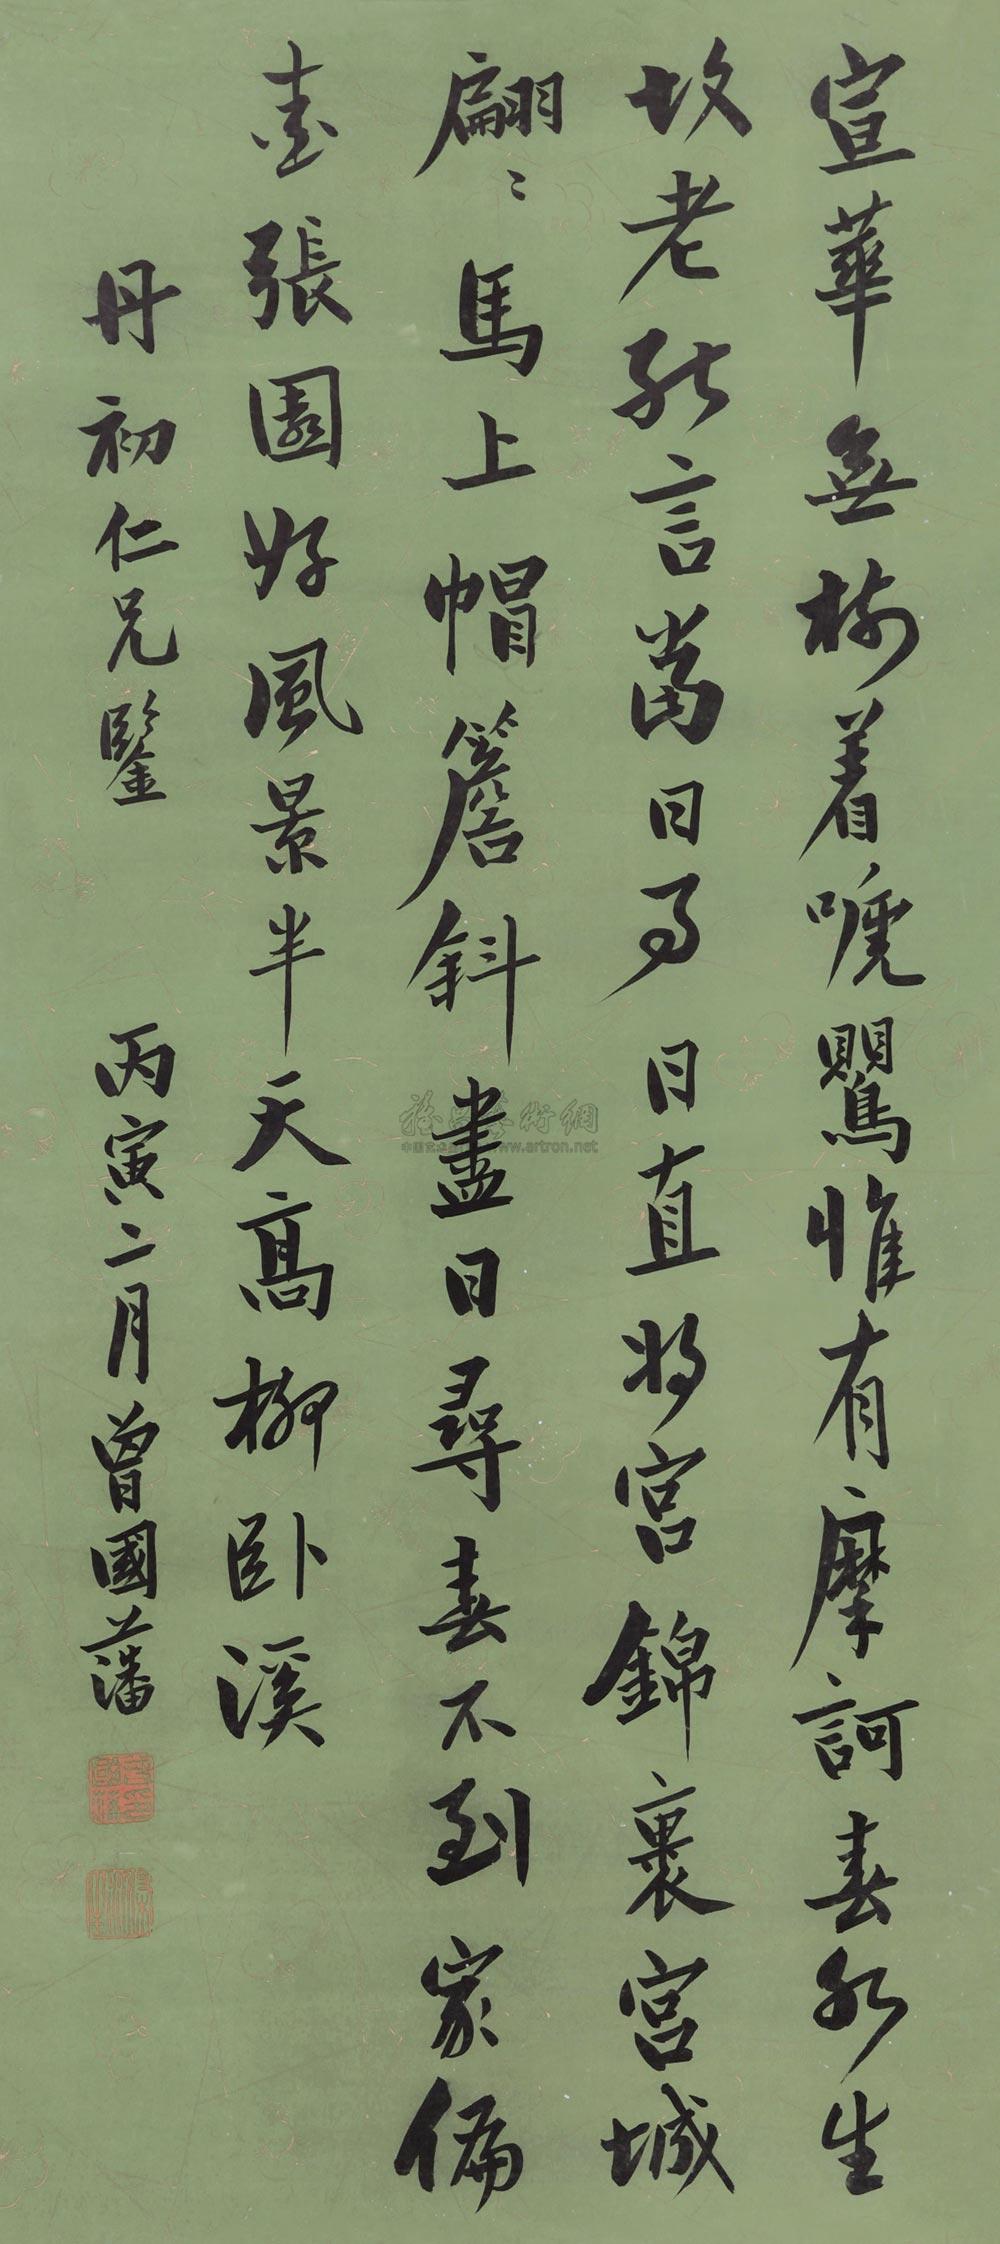 宣華無樹着嗁鶯惟有摩訶春水生
故老能言當日事日直將宮錦裹宮城
翩〻馬上帽簷斜盡日尋春不到家偏
愛張園好風景半天高柳卧溪
丹初仁兄鑒 丙寅二月曾國藩
雅昌藝術網
www.artron.net